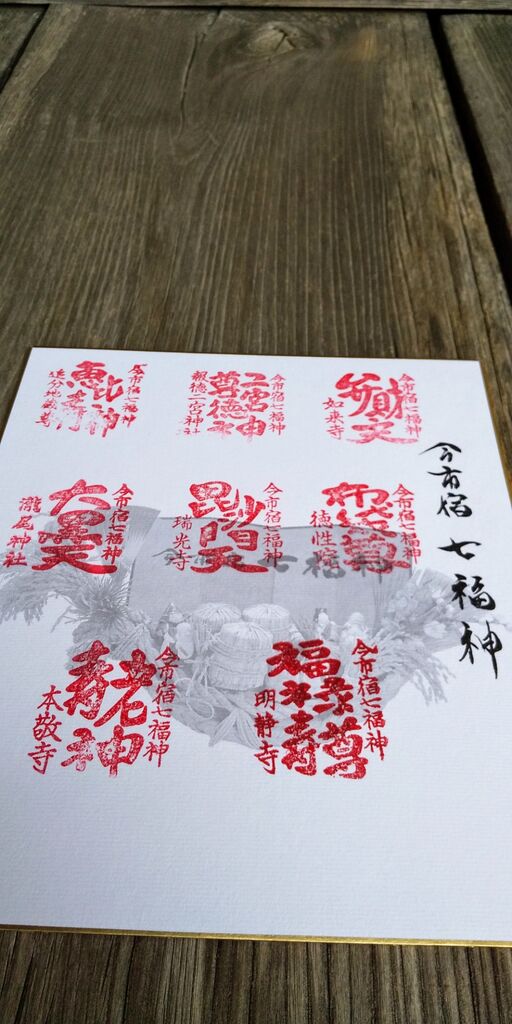 今市宿 七福神
今市宿七福神
弁財天
如来寺
今市宿七福神
二宮
尊徳
報徳二宮神社
今市宿七福神
恵比寿神
追分地蔵尊
今市宿七福神
布袋尊
徳性院
今市宿七福神
毘沙門天
瑞光寺
今市宿七福神
大黒天
瀧尾神社
今市宿七福神
福禄寿尊
明静寺
今市宿七福神
寿老神
本敬寺